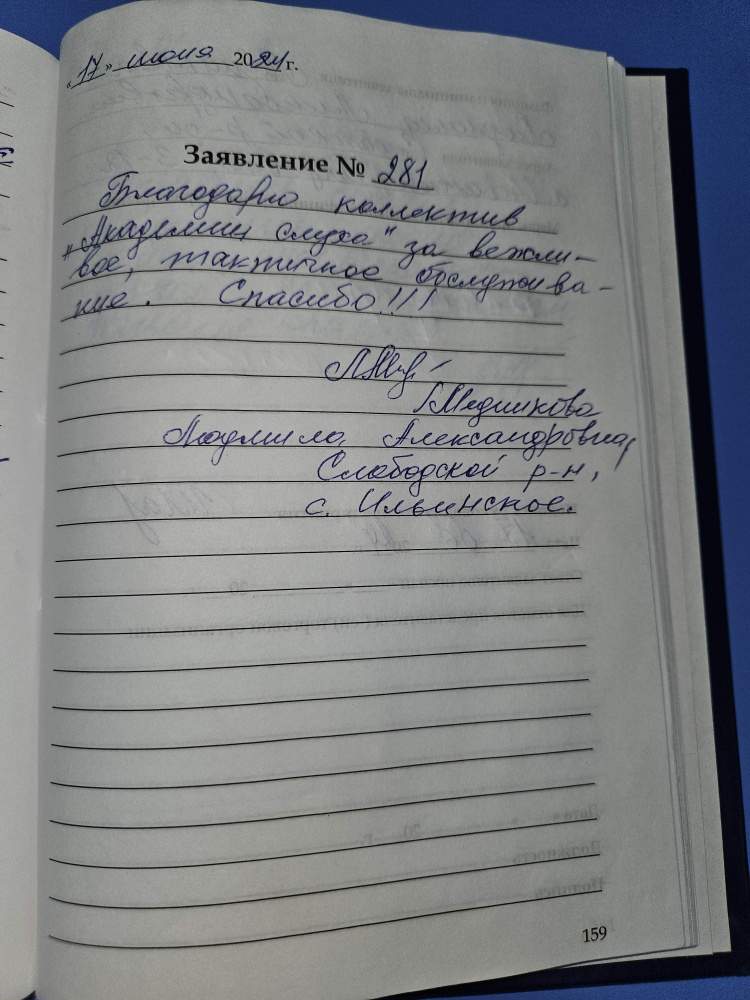 «17» июня 2024 г.
Заявление № 281
Благодарю коллектив
"Академии слуха" за вежли-
вое, тактичное обслужива-
ние. Спасибо!!!
Медникова
Людмила Александровна,
Слободской р-н,
с. Ильинское.
159